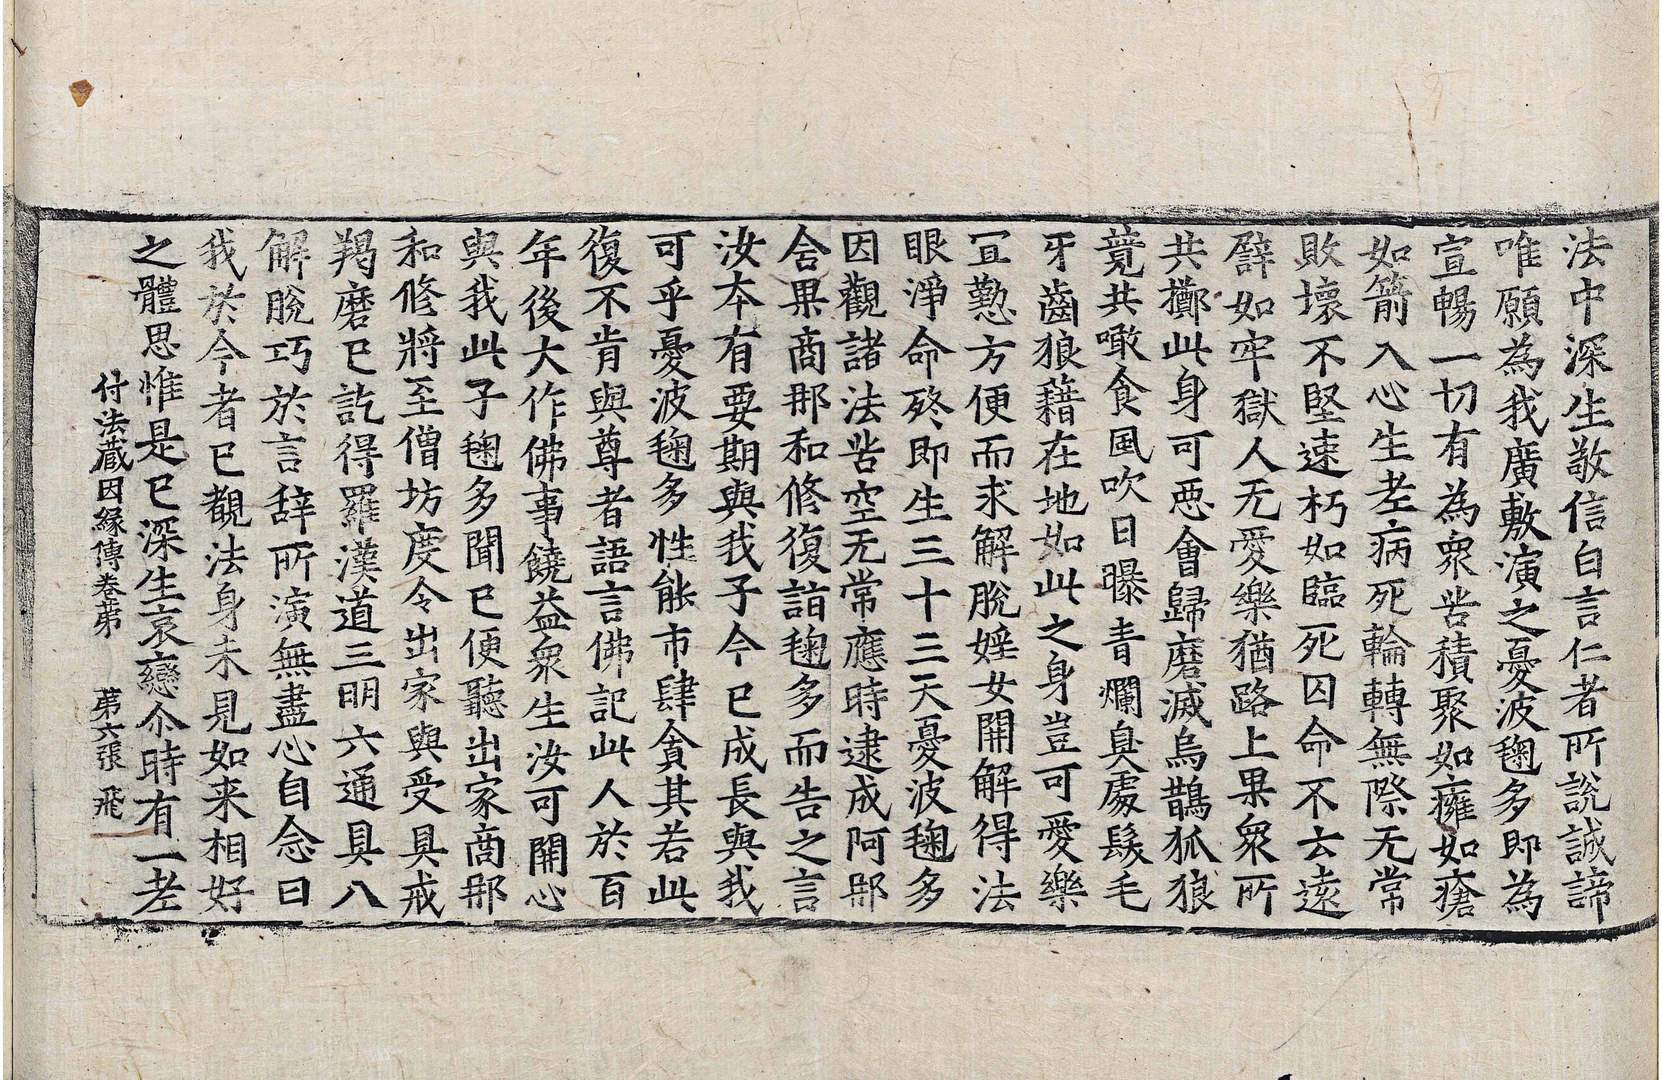 法中深生敬信白言仁者所說誠諦
唯願為我廣敷演之憂波毱多即為
宣暢一切有為衆苦積聚如癰如瘡
如箭入心生老病死輪轉無際无常
敗壞不堅速朽如臨死囚命不云遠
譬如牢獄人无愛樂猶路上果衆所
共擲此身可惡會歸磨滅烏鵲狐狼
競共噉食風吹日曝青爛臭處髮毛
牙齒狼藉在地如此之身豈可愛樂
宜懃方便而求解脫婬女聞解得法
眼淨命終即生三十三天憂波毱多
因觀諸法苦空无常應時逮成阿那
含果商那和修復詣毱多而告之言
汝本有要期與我子今已成長與我
可乎憂波毱多性能市肆貪其若此
復不肯與尊者語言佛記此人於百
年後大作佛事饒益衆生汝可開心
與我此子毱多聞已便聽出家商那
和修將至僧坊度令出家與受具戒
羯磨已訖得羅漢道三明六通具八
解脫巧於言辞所演無盡心自念曰
我於今者已覩法身未見如来相好
之體思惟是已深生哀戀尒時有一老
付法蔵因緣傳卷苐 苐六張 飛